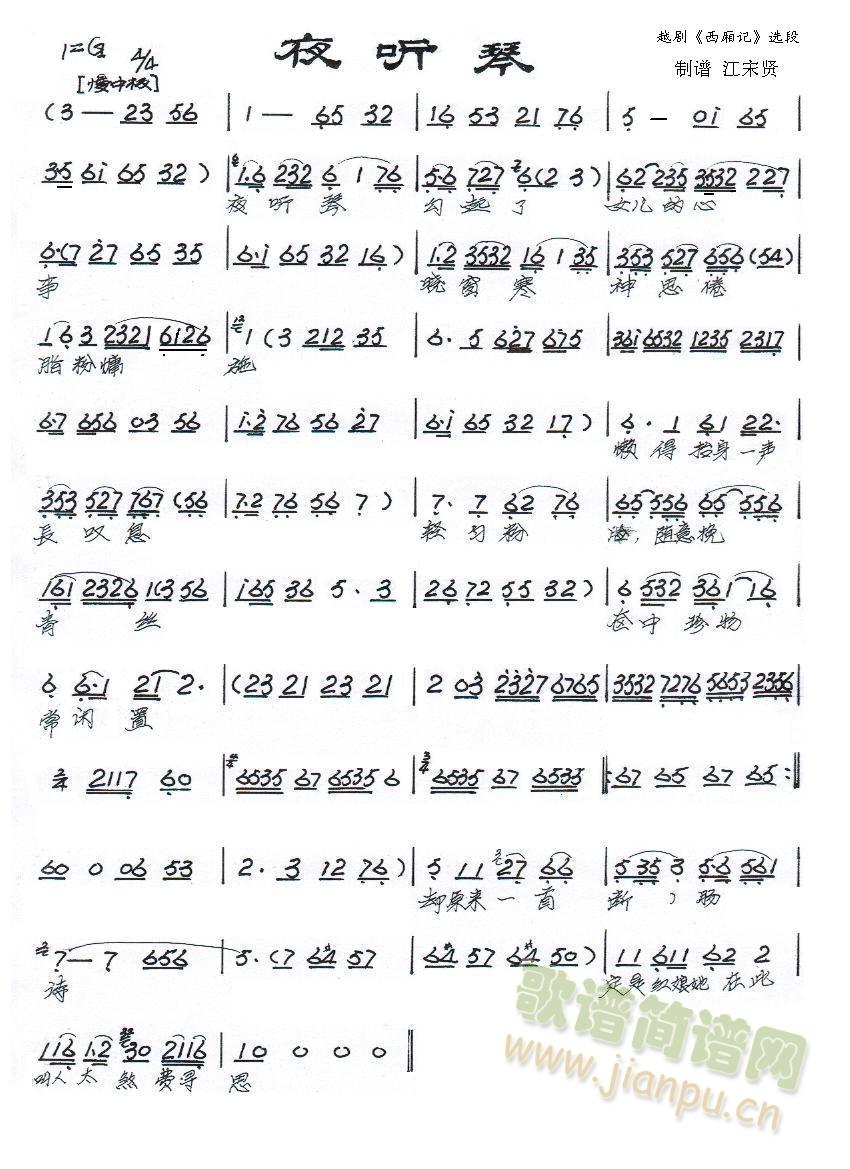 夜听琴
越剧《西厢记》选段
制谱 江宋贤
1=G 4/4
[慢中板]
(3 — 23 56 | 1 — 65 32 | 16 53 21 76 | 5 — 0i 65 |
35 6i 65 32 ) | 1.6 232 6 1 76 | 5.6 727 6(2 3) | 62 235 3532 227 |
夜 听 琴 勾 起 了 女儿 的 心
6.(7 27 65 35 | 6.i 65 32 16 ) | 1.2 3532 16 1 35 | 353 527 656 (54) |
事 晓 窗 寒 神 思 倦
1 6 3 2321 6126 | 1 (3 212 35 | 6. 5 627 675 | 36i 6532 1235 2317 |
脂粉慵 施
6.7 656 03 56 | i.2 76 56 27 | 6.i 65 32 17 ) | 6. 1 61 22. |
懒 得 抬身 一声
353 527 767 (56 | 7.2 76 56 7 ) | 7. 7 62 76 | 65 556 65 556 |
長 叹 息 轻 匀 粉 随意挽
161 2326 1(3 56 | i65 36 5. 3 | 26 72 55 32 ) | 6 532 361 16 |
青 丝 奁 中 珍 物
6 6.1 21 2. | (23 21 23 21 | 2 03 2327 6765 | 3532 7276 5653 2356 |
常 闲 置
2/4 2117 60 | 4/4 6535 67 6535 6 | 3/4 6535 67 6535 |: 67 65 67 65 :|
60 0 06 53 | 2. 3 12 76 ) | 5 11 27 66 | 5 35 3 5.6 561 |
却原来 一 首 断 肠
7 — 7 656 | 5. (7 6#4 57 | 6#4 57 6#4 50 ) | 11 611 62 2 |
诗 定是红娘她 在此
116 1.2 30 2116 | 10 0 0 0 ‖
叫人 太 煞 费寻 思
歌谱简谱网
www.jianpu.cn